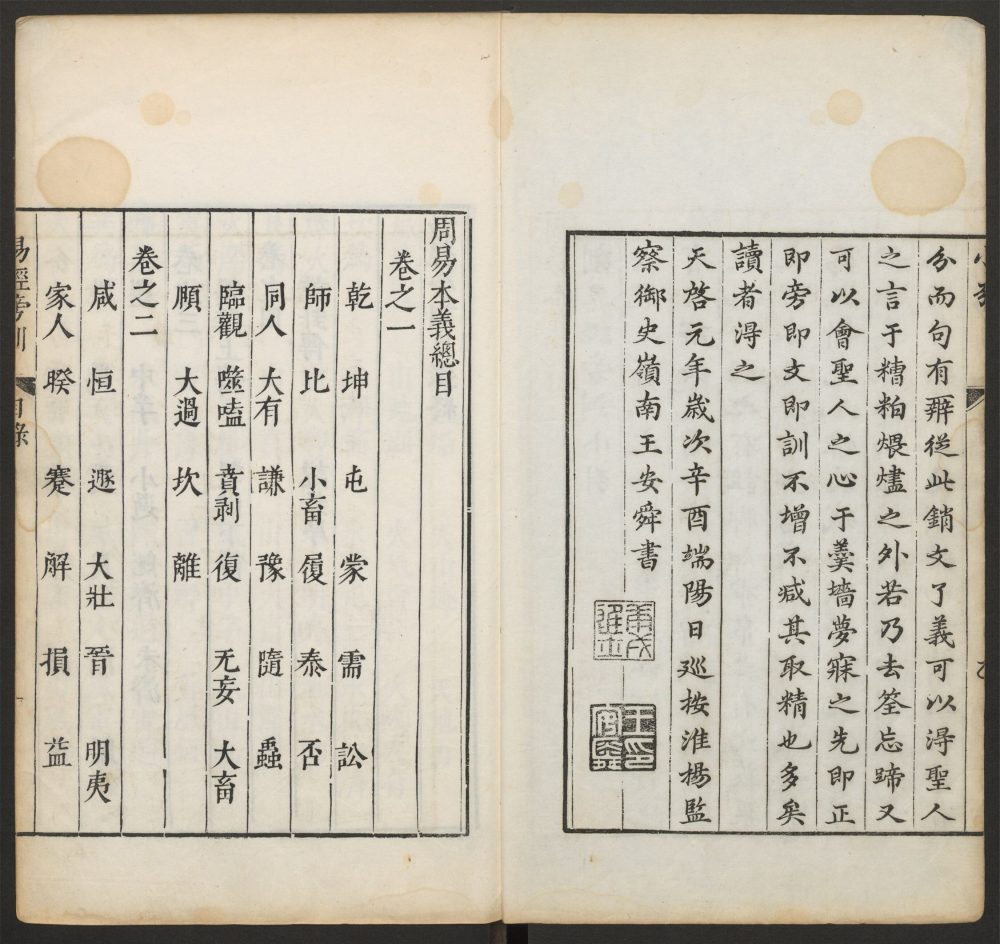 分而句有辭從此銷文了義可以淂聖人
之言于糟粕煨燼之外若乃去筌忘蹄又
可以會聖人之心于羹墻夢寐之先即正
即旁即文即訓不增不减其取精也多矣
讀者淂之
天啓元年歲次辛酉端陽日廵按淮揚監
察御史嶺南王安舜書
庚戌進士
周易本義總目
卷之一
乾 坤 屯 蒙 需 訟
師 比 小畜 履 泰 否
同人 大有 謙 豫 隨 蠱
臨 觀 噬嗑 賁 剥 復 无妄 大畜
頤 大過 坎 離
卷之二
咸 恒 遯 大壯 晉 明夷
家人 睽 蹇 解 損 益
易經旁訓 目錄